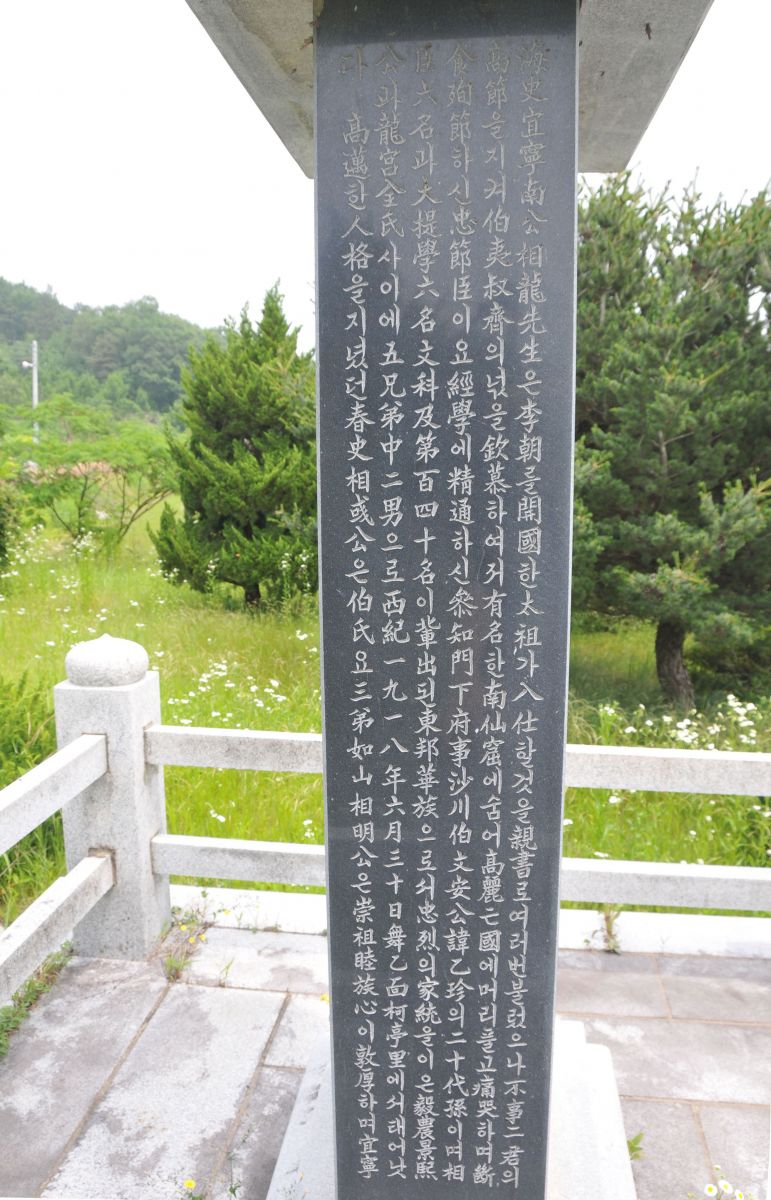 海史宜寧南公相龍先生은李朝를開國한太祖가入仕할것을親書로여러번불렀으나不事二君의
高節을지켜伯夷叔齊의넋을欽慕하여저有名한南仙窟에숨어高麗亡國에머리풀고痛哭하며斷
食殉節하신忠節臣이요經學에精通하신參知門下府事沙川伯文安公諱乙珍의二十代孫이며相
臣六名과大提學六名文科及第百四十名이輩出된東邦華族으로서忠烈의家統을이은毅農景熙
公과龍宮全氏사이에五兄弟中二男으로西紀一九一八年六月三十日舞乙面柯亭里에서태어났
다 高邁한人格을지녔던春史相彧公은伯氏요三弟如山相明公은崇祖睦族心이敦厚하며宜寧